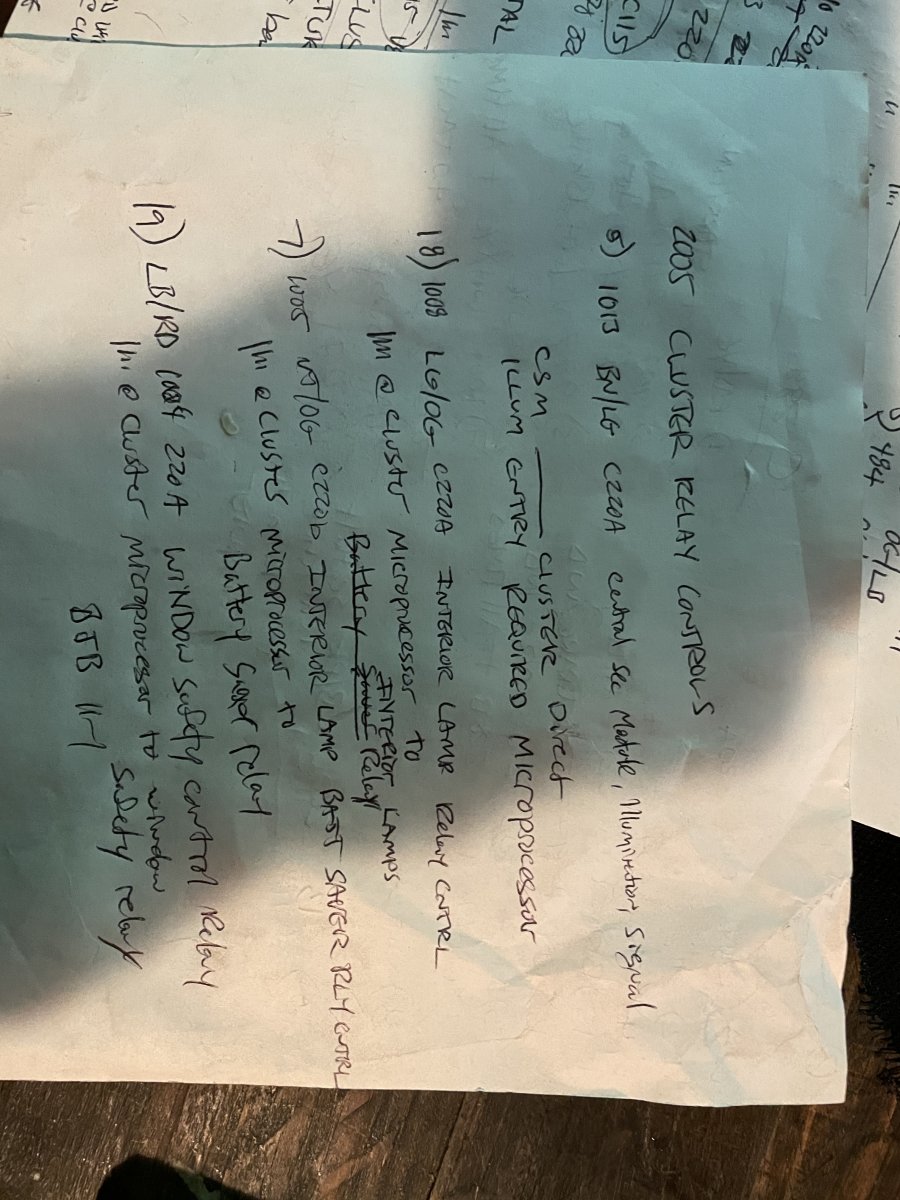 2005 CLUSTER RELAY CONTROLS
5) 1013 BN/LG C220A central sec Module, Illumination, signal
CSM ——— CLUSTER Direct
ILLUM ENTRY REQUIRED MICROPROCESSOR
18) 1008 LG/OG C220A INTERIOR LAMP Relay CNTRL
1m @ cluster MICROPROCESSOR TO
INTERIOR LAMPS
Battery Relay
7) 1005 C220b INTERIOR LAMP BATT SAVER RLY CNTRL
1m @ cluster microprocessor to
Battery Saver relay
19) LB/RD 1004 220A WINDOW Safety control Relay
1m @ cluster microprocessor to window
Safety relay
BJB 11-1
484 OG/LB
C115
220
220A